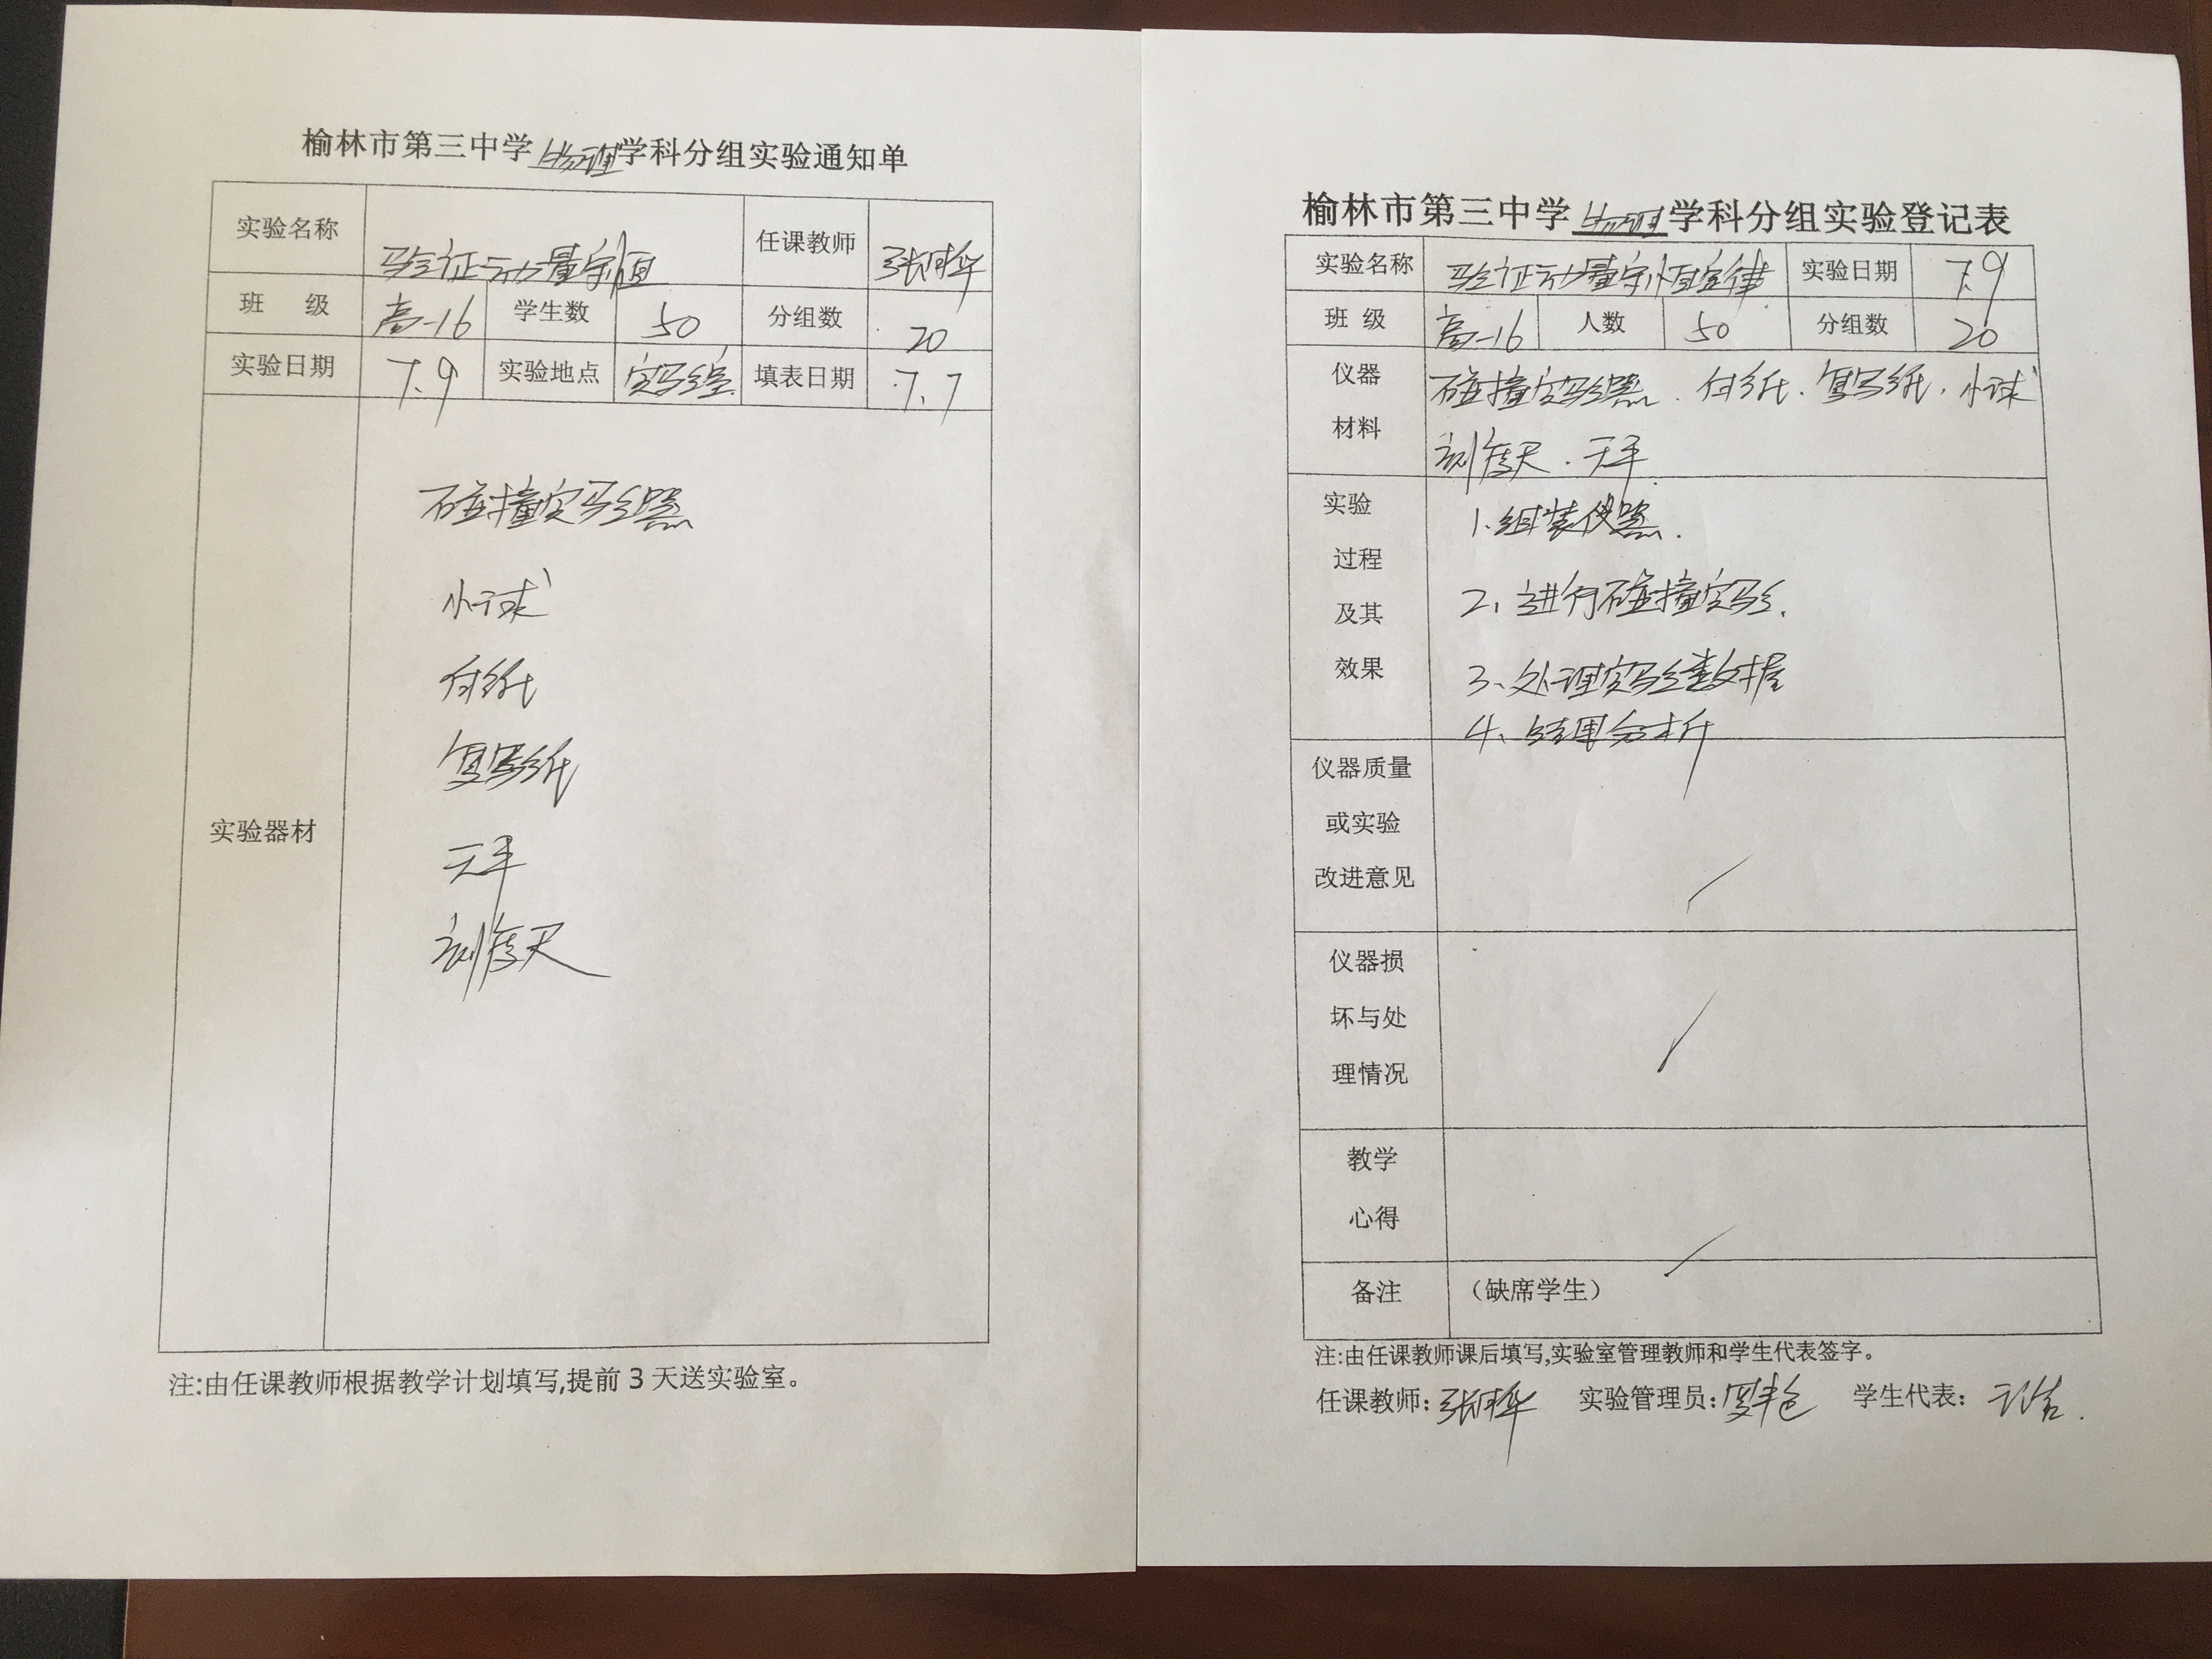 榆林市第三中学物理学科分组实验通知单
实验名称 验证动量守恒 任课教师
班 级 高一16 学生数 50 分组数 20
实验日期 7.9 实验地点 实验室 填表日期 7.7
实验器材
碰撞实验器
小球
白纸
复写纸
天平
刻度尺
注:由任课教师根据教学计划填写,提前3天送实验室。
榆林市第三中学物理学科分组实验登记表
实验名称 验证动量守恒定律 实验日期 7.9
班 级 高一16 人数 50 分组数 20
仪器 碰撞实验器、白纸、复写纸、小球
材料 刻度尺、天平
实验 1.组装仪器.
过程
及其 2、进行碰撞实验.
效果 3、处理实验数据
4、结果分析
仪器质量
或实验
改进意见
仪器损
坏与处
理情况
教学
心得
备注 (缺席学生)
注:由任课教师课后填写,实验室管理教师和学生代表签字。
任课教师: 实验管理员: 学生代表: